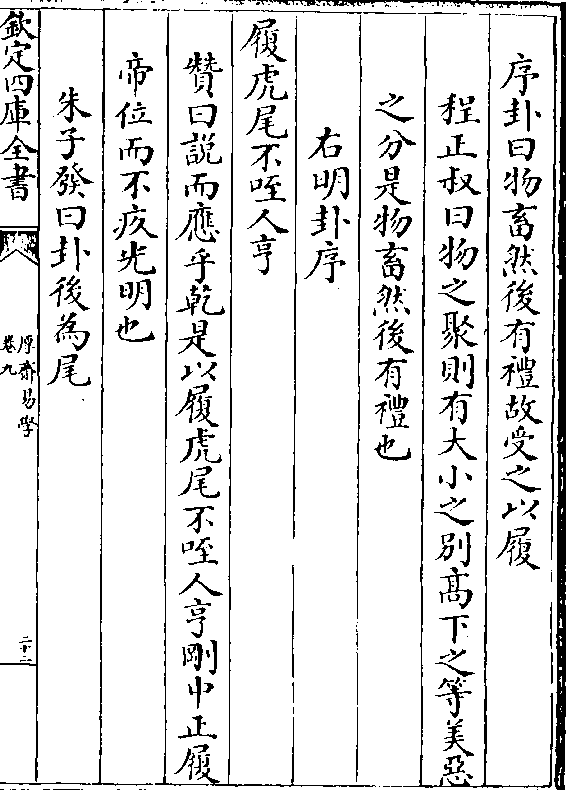 序卦曰物畜然後有禮故受之以履
程正叔曰物之聚則有大小之別髙下之等美惡
之分是物畜然後有禮也
右明卦序
履虎尾不咥人亨
贊曰説而應乎乾是以履虎尾不咥人亨剛中正履
帝位而不疚光明也
朱子發曰卦後為尾
欽定四庫全書
厚齋易學
卷九
二十二